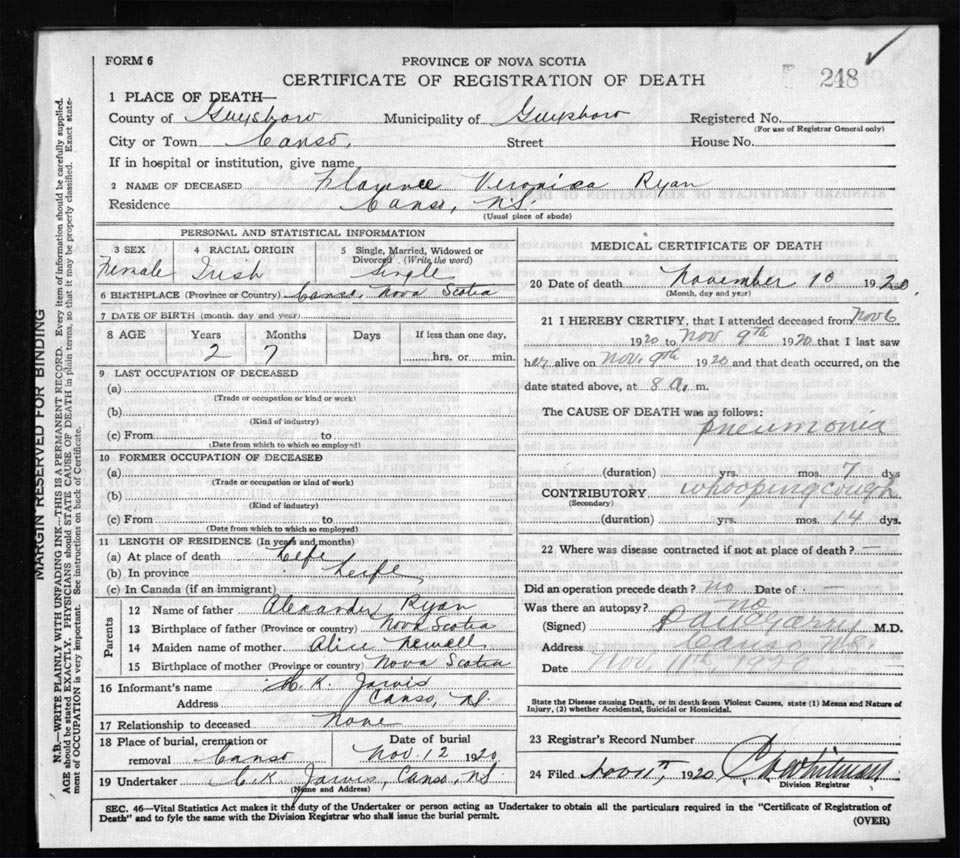 FORM 6
PROVINCE OF NOVA SCOTIA
248
CERTIFICATE OF REGISTRATION OF DEATH
1 PLACE OF DEATH—
County of Guysboro Municipality of Guysboro Registered No.
(For use of Registrar General only)
City or Town Canso, Street House No.
If in hospital or institution, give name
2 NAME OF DECEASED Florence Veronica Ryan
Residence Canso, N.S.
(Usual place of abode)
PERSONAL AND STATISTICAL INFORMATION
3 SEX 4 RACIAL ORIGIN 5 Single, Married, Widowed or Divorced. (Write the word)
Female Irish Single
6 BIRTHPLACE (Province or Country) Canso, Nova Scotia
7 DATE OF BIRTH (month, day and year)
8 AGE Years Months Days If less than one day,
2 7 hrs. or min.
9 LAST OCCUPATION OF DECEASED
(a)
(Trade or occupation or kind or work)
(b)
(Kind of industry)
(c) From to
(Date from which to which so employed)
10 FORMER OCCUPATION OF DECEASED
(a)
(Trade or occupation or kind of work)
(b)
(Kind of industry)
(c) From to
(Date from which to which so employed)
11 LENGTH OF RESIDENCE (In years and months)
(a) At place of death Life
(b) In province Life
(c) In Canada (if an immigrant)
Parents
12 Name of father Alexander Ryan
13 Birthplace of father (Province or country) Nova Scotia
14 Maiden name of mother Alice
15 Birthplace of mother (Province or country) Nova Scotia
16 Informant's name K. Jarvis
Address Canso, N.S.
17 Relationship to deceased None
18 Place of burial, cremation or removal Canso
Date of burial Nov. 12 1920
19 Undertaker C. K. Jarvis, Canso, N.S.
(Name and Address)
MEDICAL CERTIFICATE OF DEATH
20 Date of death November 10 1920.
(Month, day and year)
21 I HEREBY CERTIFY, that I attended deceased from Nov 6
1920 to Nov 9th 1920 that I last saw
her alive on Nov. 9th 1920 and that death occurred, on the
date stated above, at 8 a. m.
The CAUSE OF DEATH was as follows:
Pneumonia
(duration) yrs. mos. 7 dys
CONTRIBUTORY whooping cough
(Secondary)
(duration) yrs. mos. 14 dys.
22 Where was disease contracted if not at place of death? —
Did an operation precede death? no Date of —
Was there an autopsy? no
(Signed) M.D.
Address Canso N.S.
Date Nov. 11th, 1920
State the Disease causing Death, or in death from Violent Causes, state (1) Means and Nature of
Injury, (2) whether Accidental, Suicidal or Homicidal.
23 Registrar's Record Number
24 Filed Nov 11th, 1920 Whitman
Division Registrar
SEC. 46—Vital Statistics Act makes it the duty of the Undertaker or person acting as Undertaker to obtain all the particulars required in the "Certificate of Registration of
Death" and to fyle the same with the Division Registrar who shall issue the burial permit.
(OVER)
MARGIN RESERVED FOR BINDING
N.B.—WRITE PLAINLY WITH UNFADING INK—THIS IS A PERMANENT RECORD. Every item of information should be carefully supplied.
AGE should be stated EXACTLY. PHYSICIANS should STATE CAUSE OF DEATH in plain terms, so that it may be properly classified. Exact state-
ment of OCCUPATION is very important. See instructions on back of Certificate.